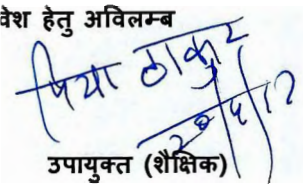 वेश हेतु अविलम्ब
प्रिया ठाकुर
उपायुक्त (शैक्षिक)